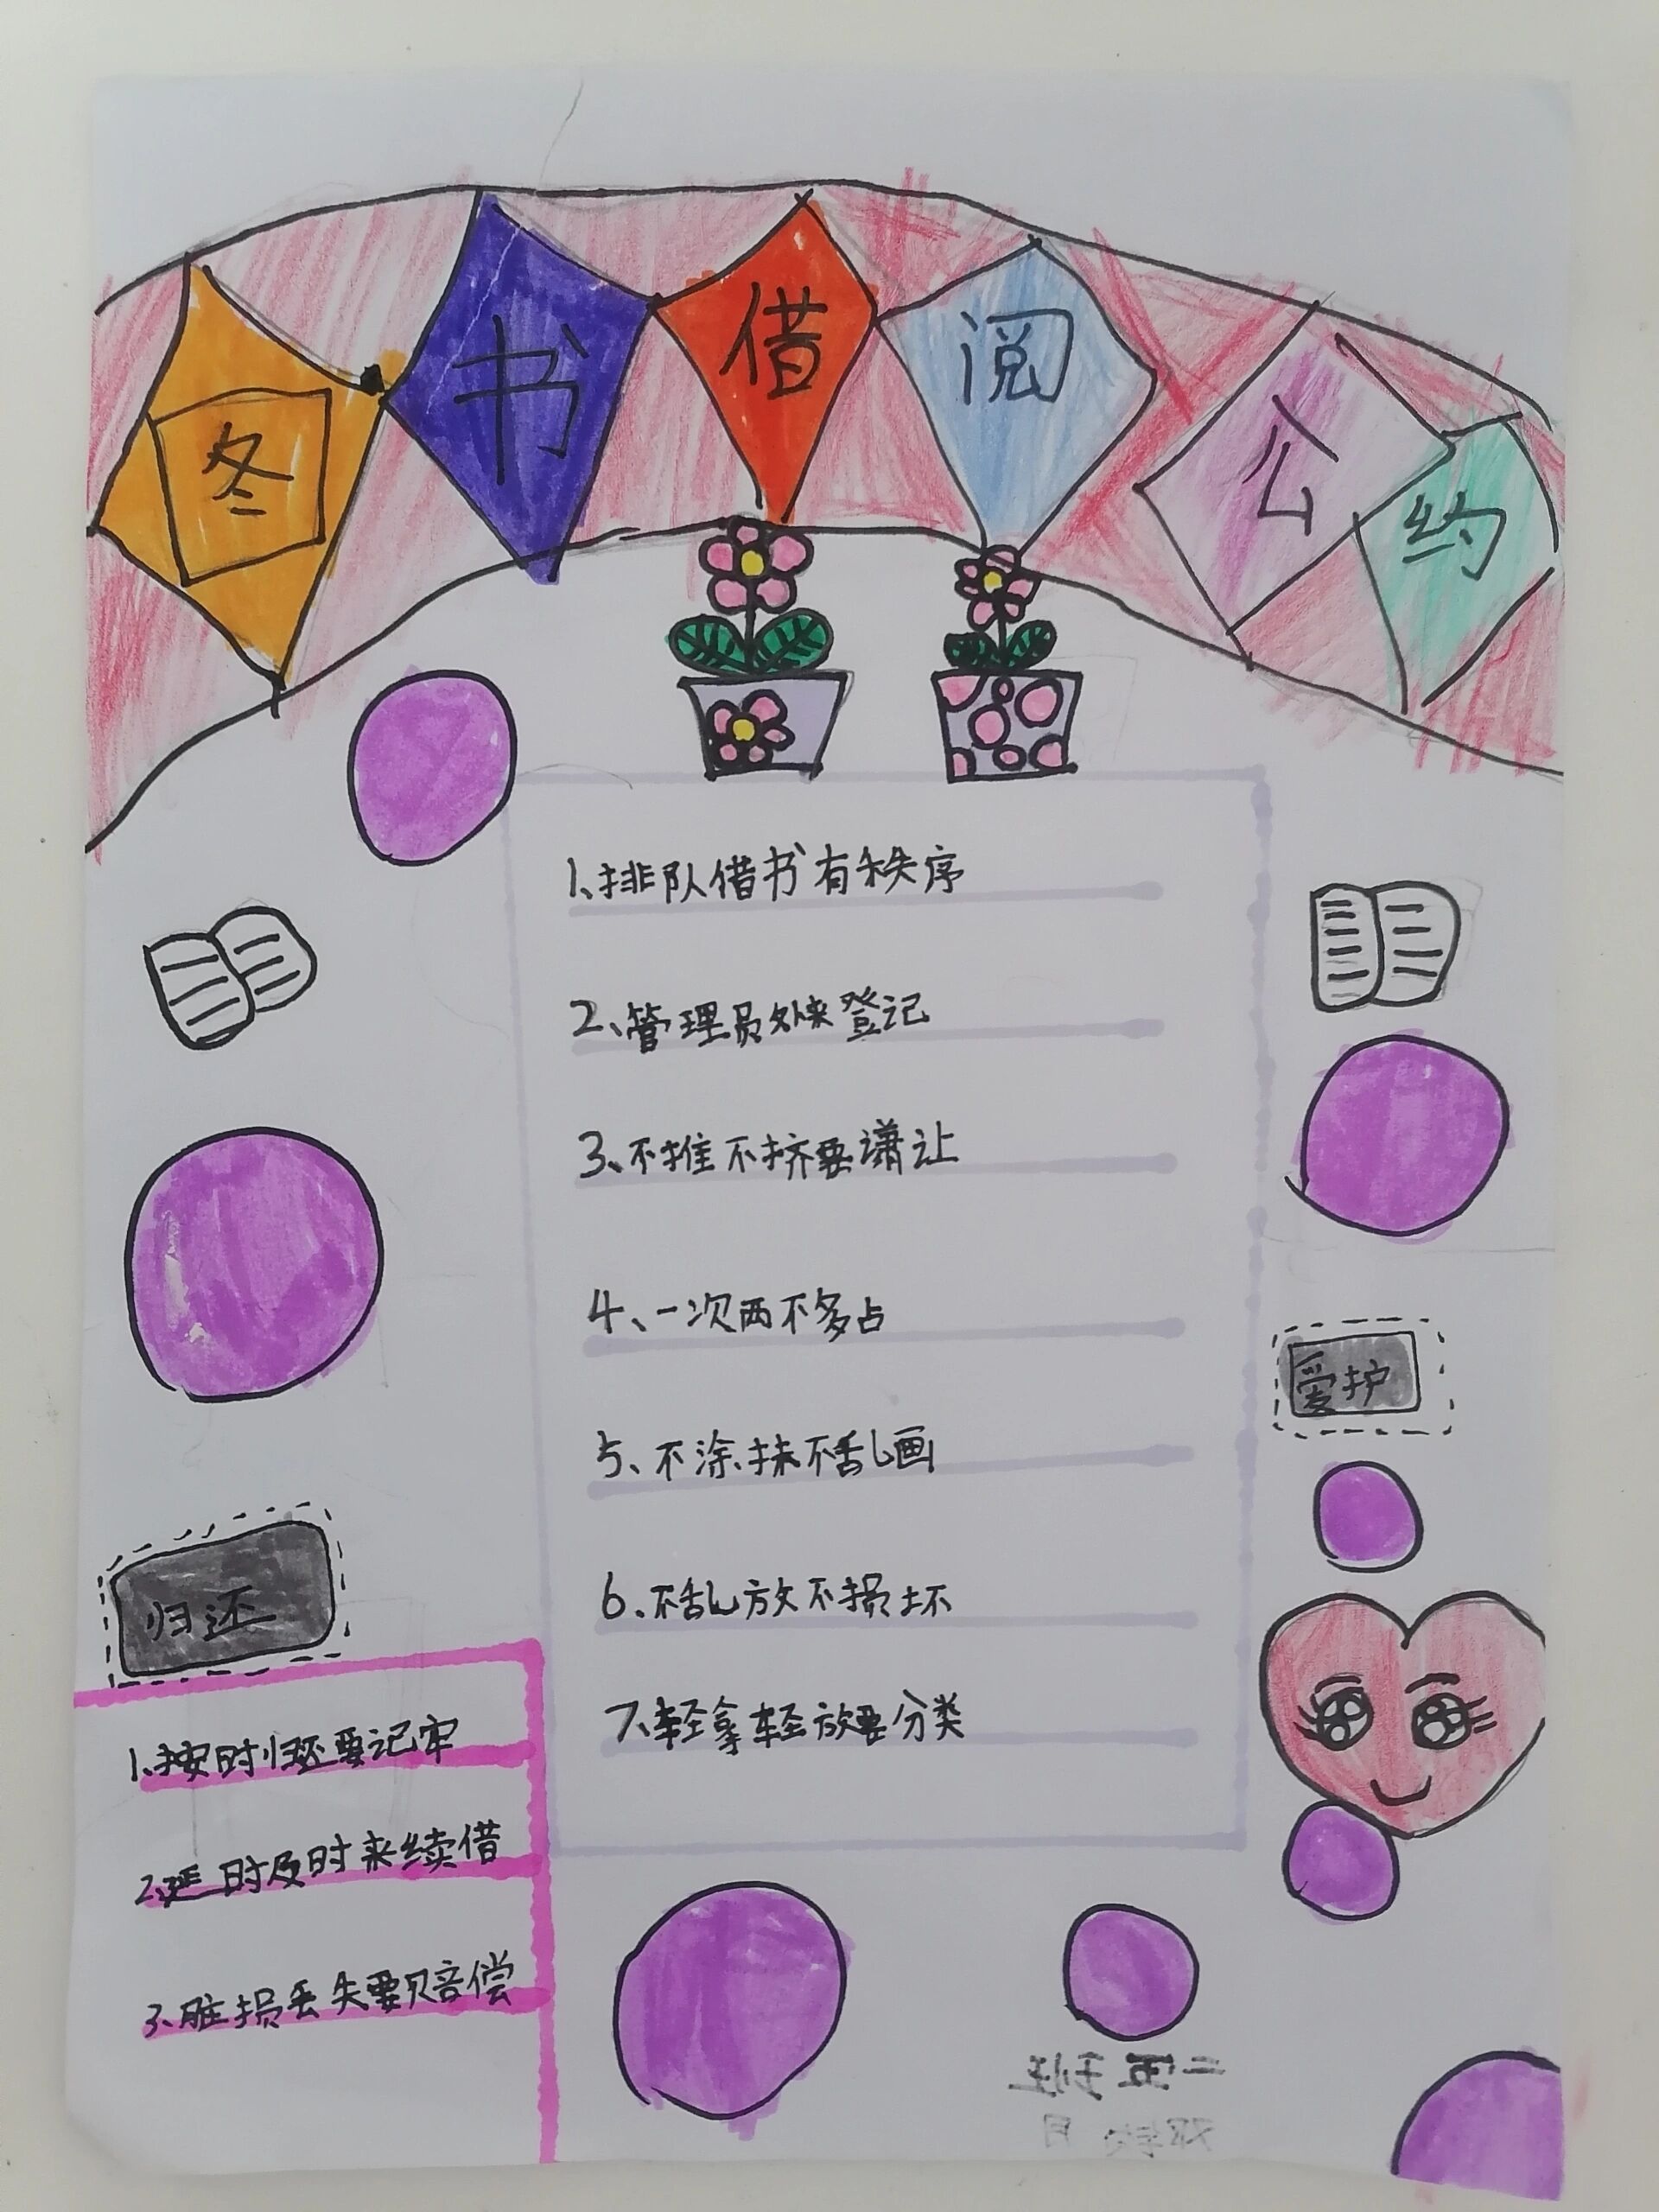 图书借阅公约
1、排队借书有秩序
2、管理员处来登记
3、不推不挤要谦让
4、一次两不多占
5、不涂抹不乱画
6、不乱放不损坏
7、轻拿轻放要分类
爱护
归还
1、按时归还要记牢
2、延时及时来续借
3、脏损丢失要赔偿